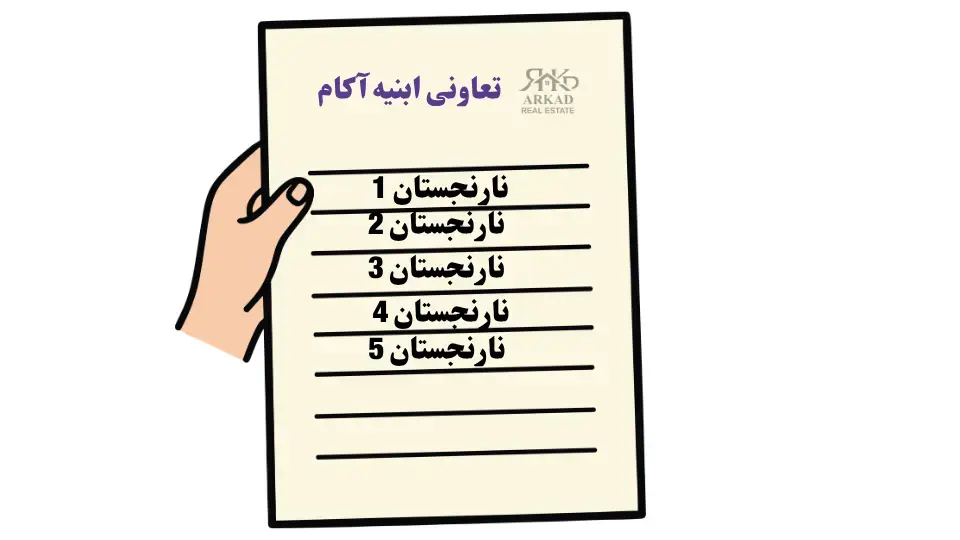 تعاونی ابنیه آکام
ARKAD
REAL ESTATE
نارنجستان 1
نارنجستان 2
نارنجستان 3
نارنجستان 4
نارنجستان 5